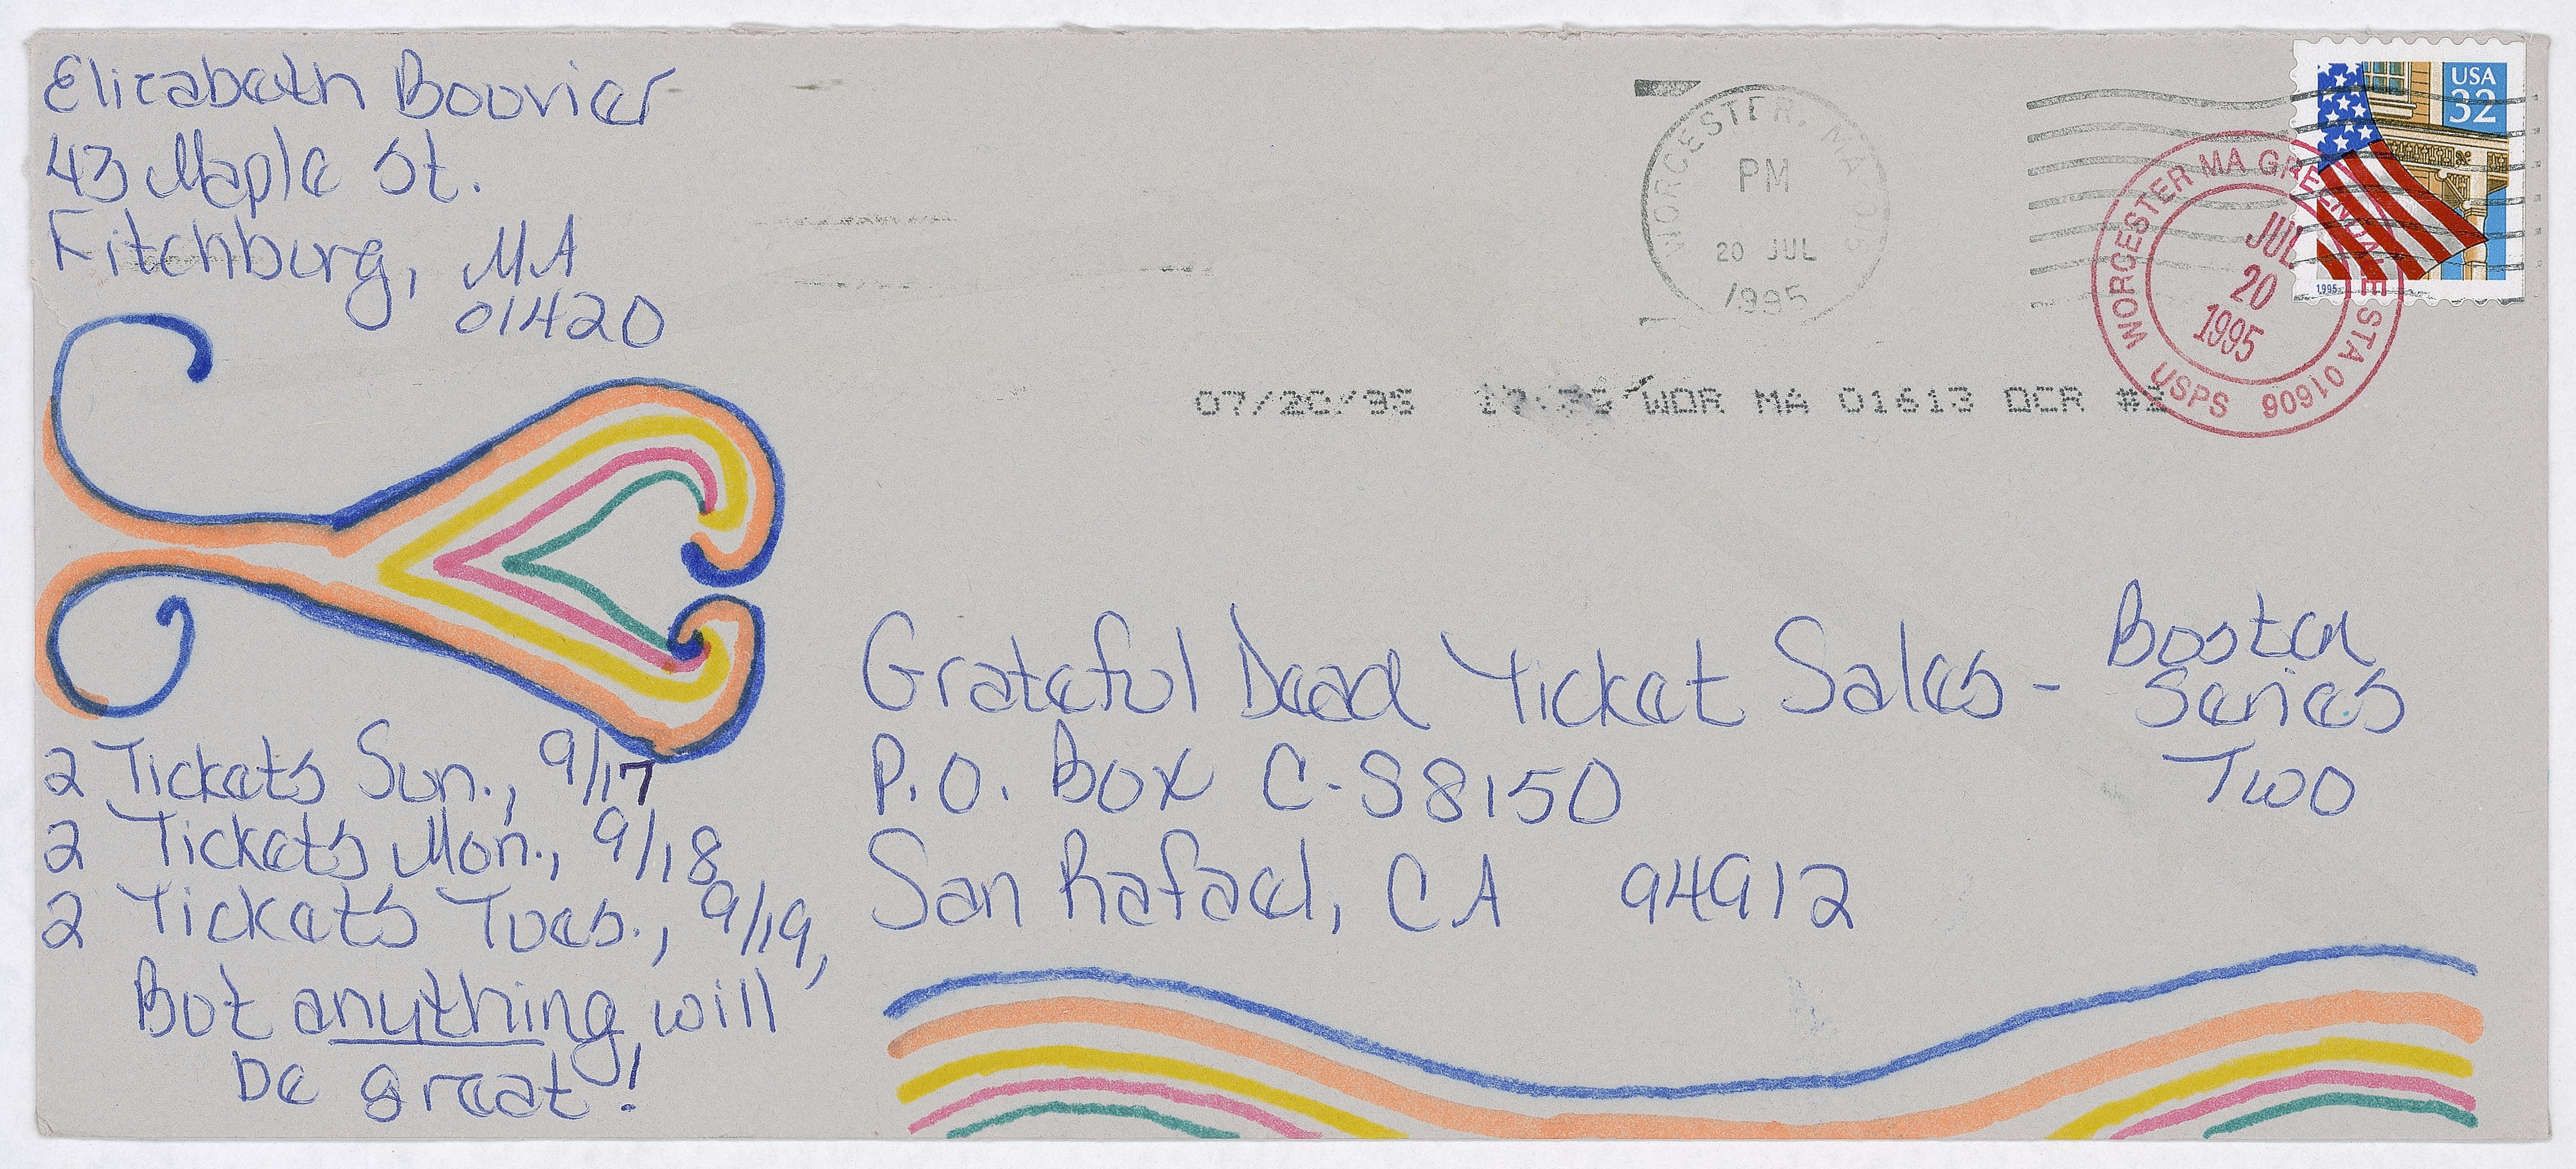 Elizabeth Bouvier
43 Maple St.
Fitchburg, MA
01420
WORCESTER, MA
PM
20 JUL
1995
USA
32
1995
WORCESTER MA GREENDALE STA 01606
USPS
JUL
20
1995
07/20/95 WOR MA 01613 OCR #2
Grateful Dead Ticket Sales - Boston
Series
Two
P.O. Box C-S8150
San Rafael, CA 94912
2 Tickets Sun., 9/17
2 Tickets Mon., 9/18
2 Tickets Tues., 9/19,
But anything will
be great!